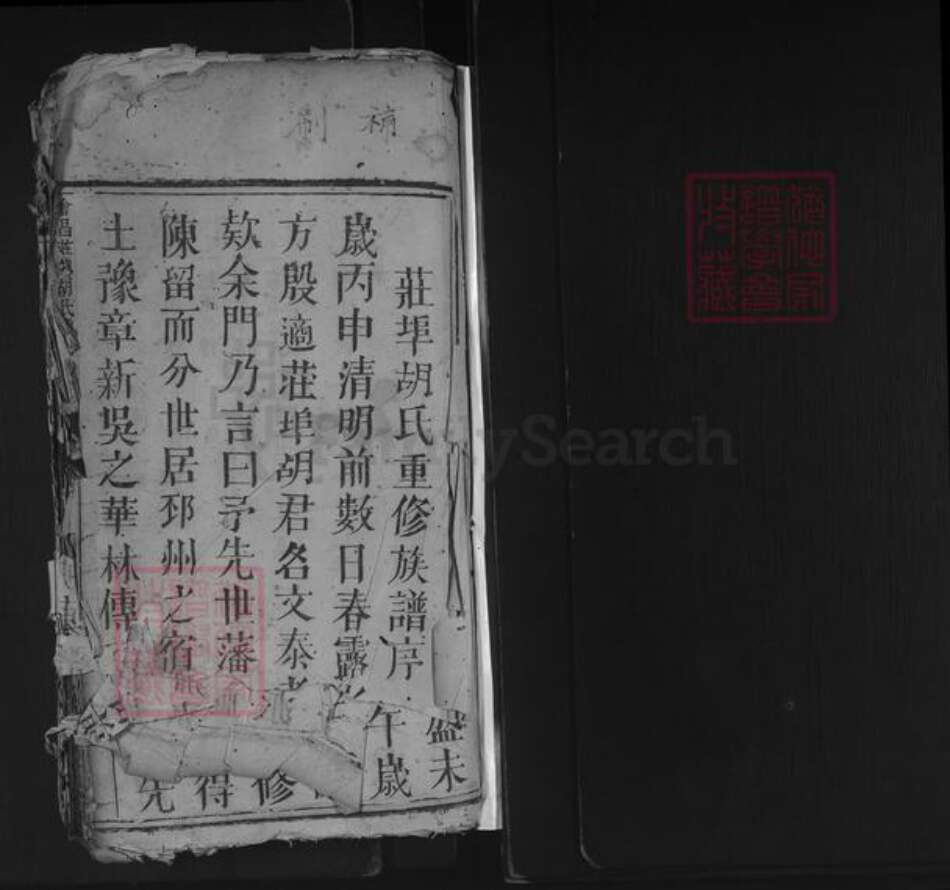 補刷
莊埠胡氏重修族譜序
歲丙申清明前數日春露
方殷適莊埠胡君名文泰者
欵余門乃言曰予先世藩
陳留而分世居邳州之宿
士豫章新吳之華林傳
盤未
午歲
修
得
先
胡氏
FamilySearch